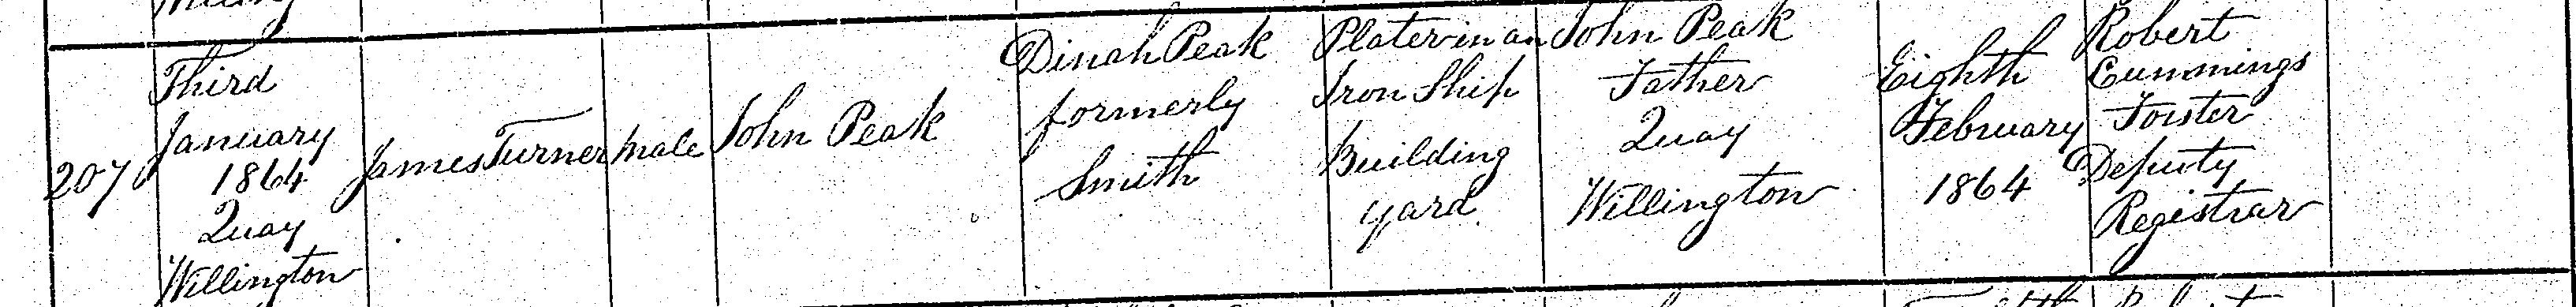 207
Third
January
1864
Quay
Willington
James Turner
Male
John Peak
Dinah Peak
formerly
Smith
Plater in an
Iron Ship
Building
yard
John Peak
Father
Quay
Willington
Eighth
February
1864
Robert
Cummings
Forster
Deputy
Registrar